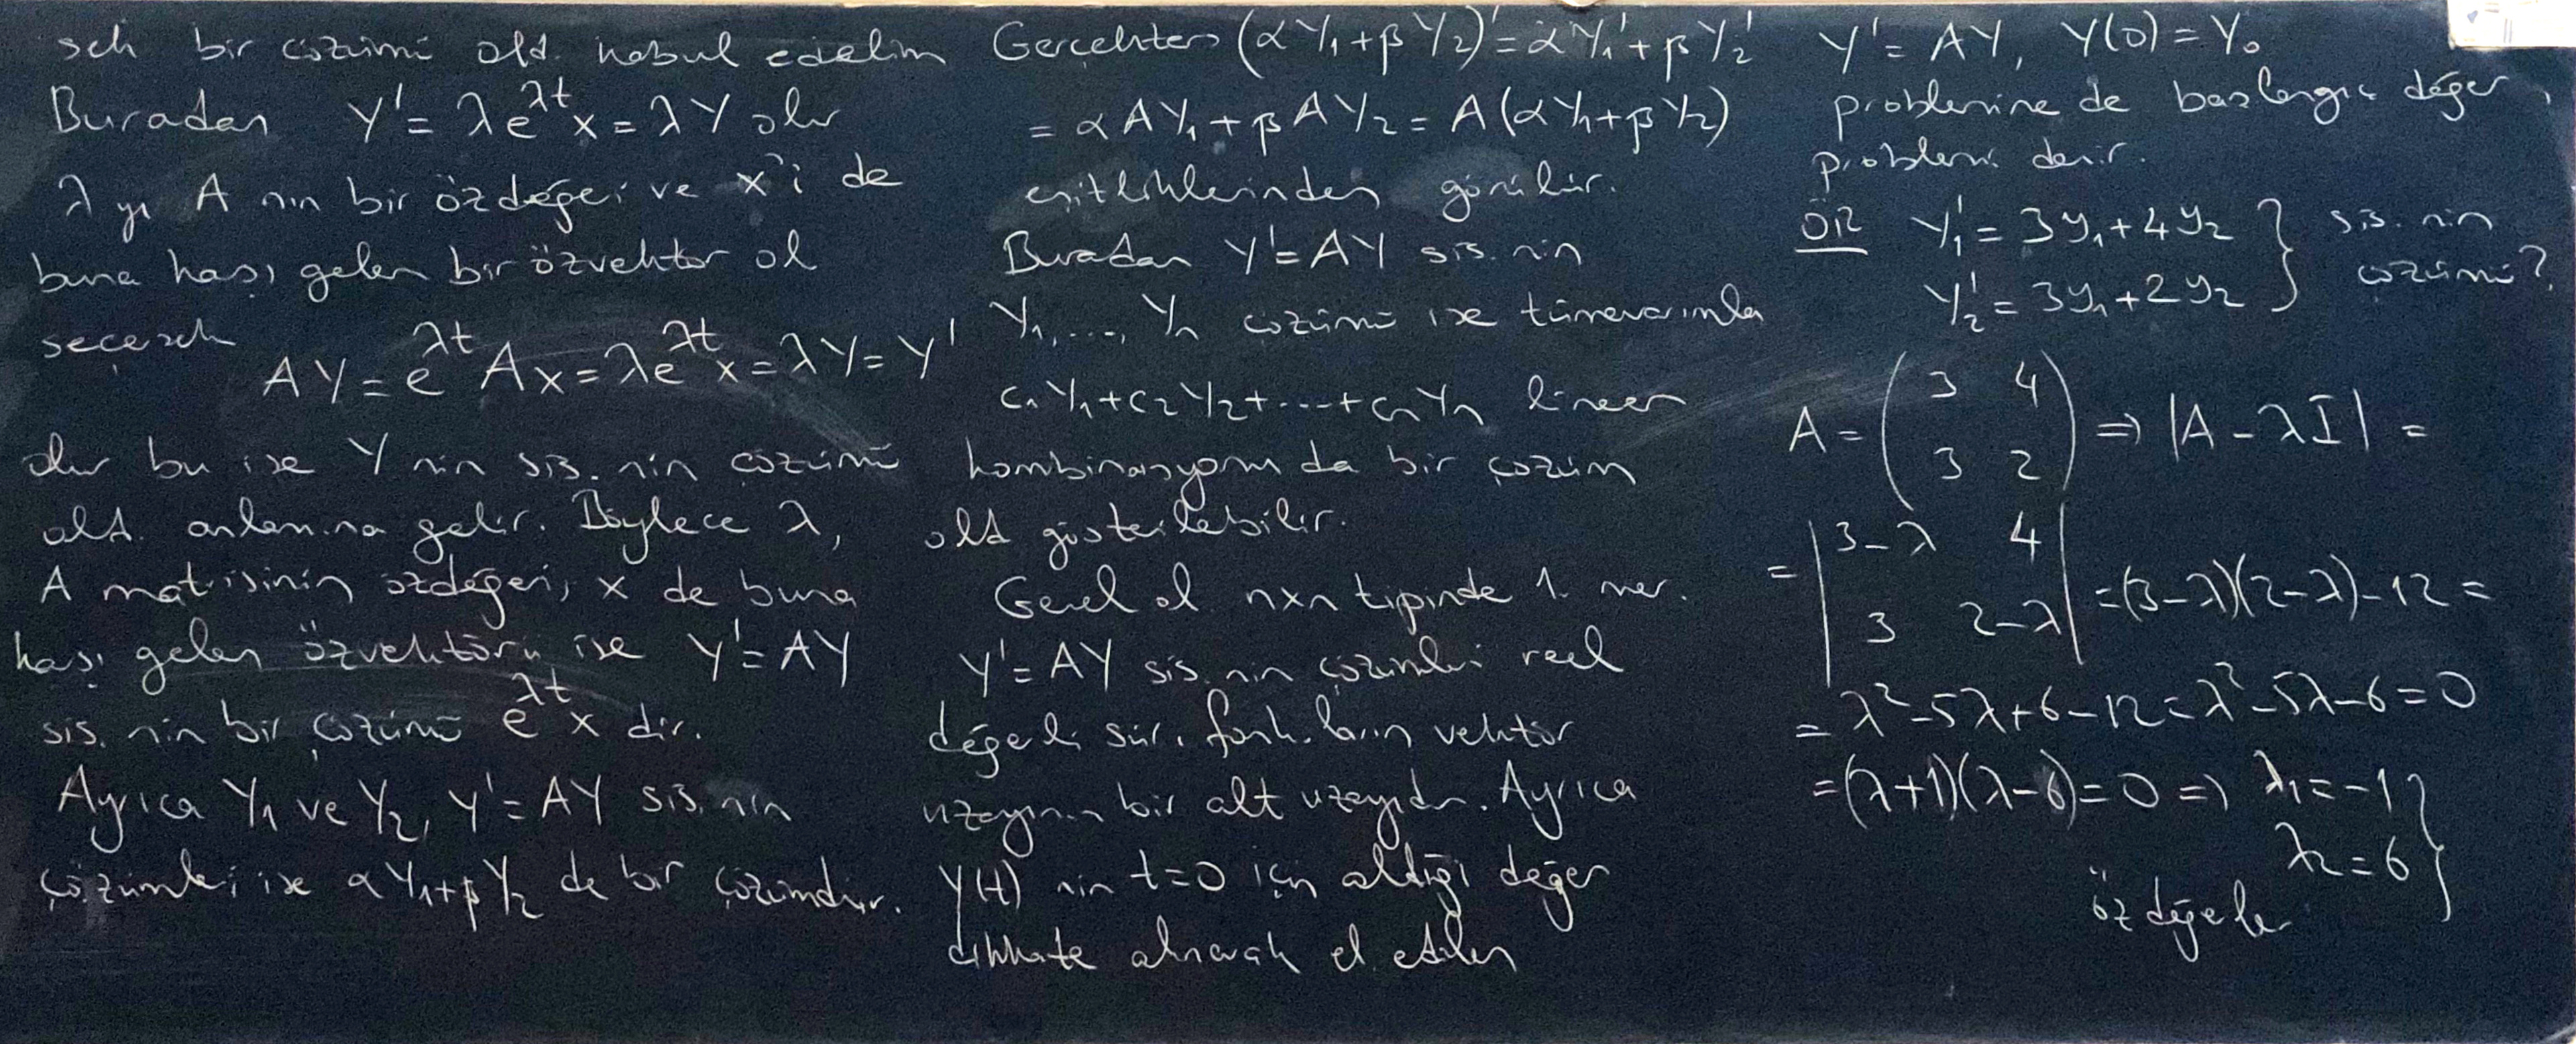 sek bir çözümü old. kabul edelim
Buradan Y' = λe^{λt}x = λY olur
λ yı A nın bir özdeğeri ve x'i de
buna karşı gelen bir özvektör ol
seçersek
AY = e^{λt}Ax = λe^{λt}x = λY = Y'
olur bu ise Y nin sis. nin çözümü
old. anlamına gelir. Böylece λ,
A matrisinin özdeğeri, x de buna
karşı gelen özvektörü ise Y' = AY
sis. nin bir çözümü e^{λt}x dir.
Ayrıca Y₁ ve Y₂, Y' = AY sis. nin
çözümleri ise αY₁+βY₂ de bir çözümdür.
Gerçekten (αY₁+βY₂)' = αY₁'+βY₂'
= αAY₁+βAY₂ = A(αY₁+βY₂)
eşitliklerinden görülür.
Buradan Y' = AY sis. nin
Y₁, ..., Yₙ çözümü ise tümevarımla
c₁Y₁+c₂Y₂+...+cₙYₙ lineer
kombinasyonu da bir çözüm
old gösterilebilir.
Genel ol. nxn tipinde 1. mer.
Y' = AY sis. nin çözümleri reel
değerli sür. fonk. ların vektör
uzayının bir alt uzayıdır. Ayrıca
Y(t) nin t=0 için aldığı değer
dikkate alınarak el. edilen
Y' = AY, Y(0) = Y₀
problemine de başlangıç değer
problemi denir.
ÖR Y₁' = 3y₁+4y₂ } sis. nin
Y₂' = 3y₁+2y₂ } çözümü?
A = (3 4
3 2) ⇒ |A - λI| =
= |3-λ 4
3 2-λ| = (3-λ)(2-λ)-12 =
= λ²-5λ+6-12 = λ²-5λ-6 = 0
= (λ+1)(λ-6) = 0 ⇒ λ₁ = -1 }
λ₂ = 6
özdeğerler